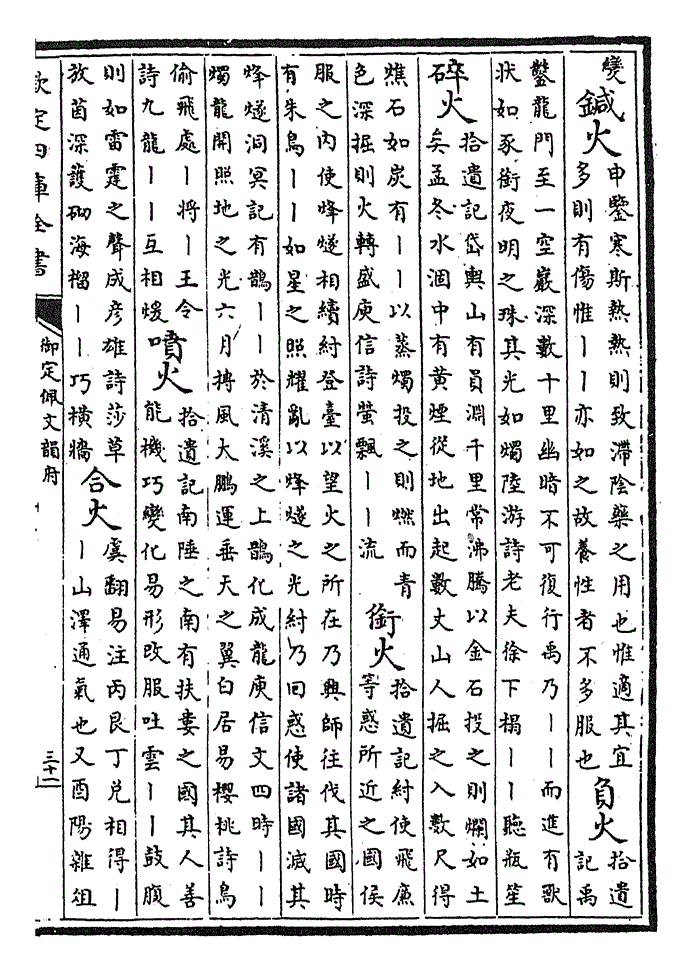 變
鍼火
申鑒寒斯熱熱則致滯陰藥之用也惟適其宜
多則有傷惟丨丨亦如之故養性者不多服也
負火
拾遺
記禹
鑿龍門至一空巖深數十里幽暗不可復行禹乃丨丨而進有獸
狀如豕銜夜明之珠其光如燭陸游詩老夫徐下榻丨丨聽瓶笙
碎火
拾遺記岱輿山有員淵千里常沸騰以金石投之則爛如土
石矣孟冬水涸中有黃煙從地出起數丈山人掘之入數尺得
燋石如炭有丨丨以蒸燭投之則燃而青
色深掘則火轉盛庾信詩螢飄丨丨流
銜火
拾遺記紂使飛廉
等惑所近之國侯
服之內使烽燧相續紂登臺以望火之所在乃興師往伐其國時
有朱鳥丨丨如星之照耀亂以烽燧之光紂乃回惑使諸國滅其
烽燧洞冥記有鵲丨丨於清溪之上鵲化成龍庾信文四時丨丨
燭龍開照地之光六月摶風大鵬運垂天之翼白居易櫻桃詩鳥
偷飛處丨將丨王令
詩九龍丨丨互相煖
噴火
拾遺記南陲之南有扶婁之國其人善
能機巧變化易形改服吐雲丨丨鼓腹
則如雷霆之聲成彥雄詩莎草
放茵深護砌海榴丨丨巧橫牆
合火
虞翻易注丙艮丁兌相得丨
丨山澤通氣也又酉陽雜俎
欽定四庫全書
御定佩文韻府
三十二